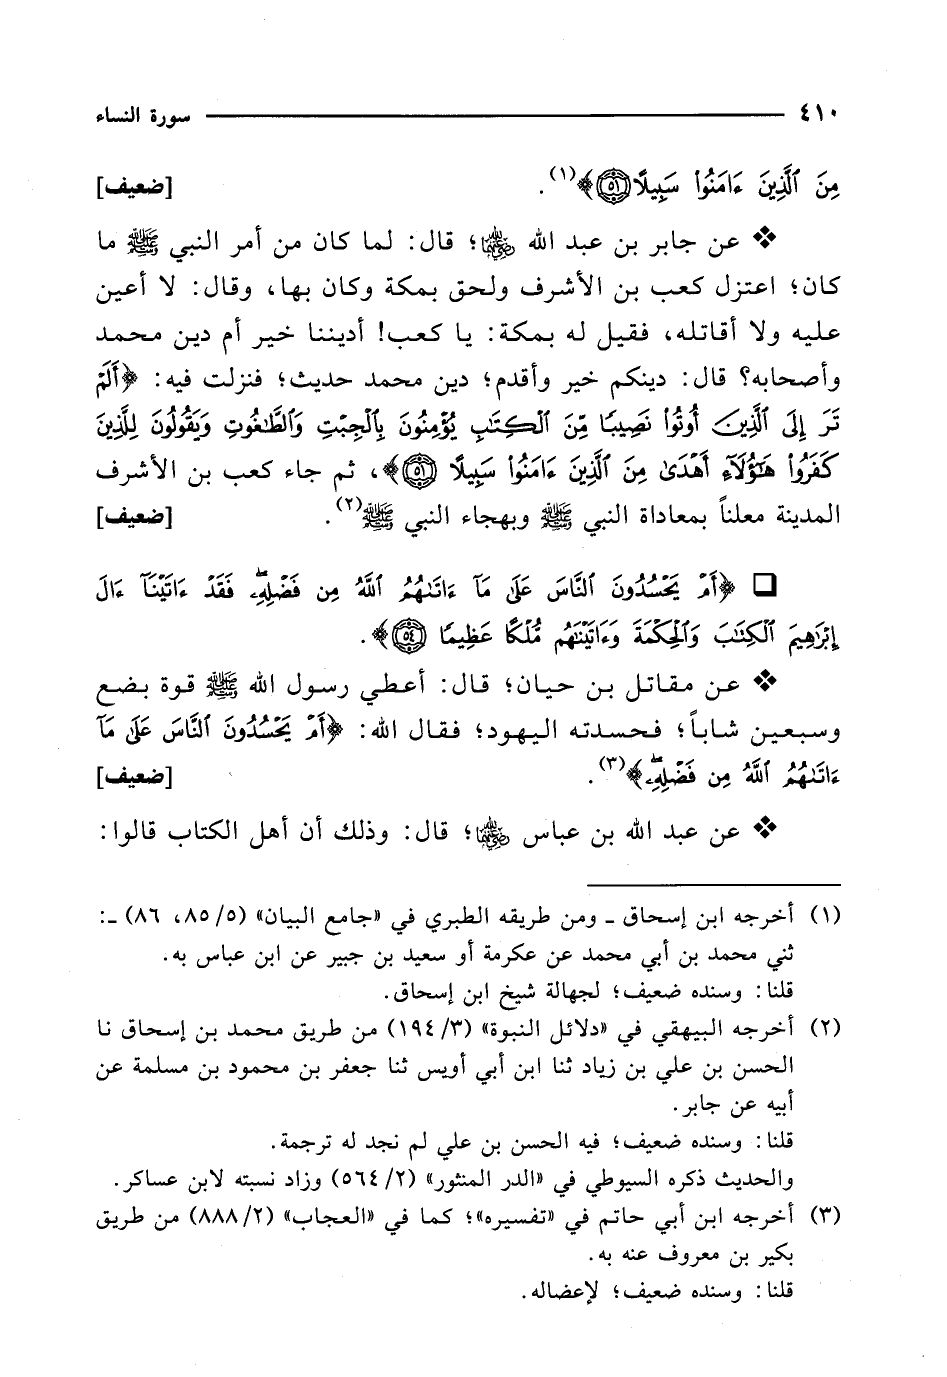 ٤١٠ سورة النساء
مِنَ ٱلَّذِينَ ءَامَنُوا۟ سَبِيلًا ﴿٥١﴾﴾(١). [ضعيف]
❖ عن جابر بن عبد الله رضي الله عنه؛ قال: لما كان من أمر النبي ﷺ ما
كان؛ اعتزل كعب بن الأشرف ولحق بمكة وكان بها، وقال: لا أعين
عليه ولا أقاتله، فقيل له بمكة: يا كعب! أديننا خير أم دين محمد
وأصحابه؟ قال: دينكم خير وأقدم؛ دين محمد حديث؛ فنزلت فيه: ﴿أَلَمْ
تَرَ إِلَى ٱلَّذِينَ أُوتُوا۟ نَصِيبًا مِّنَ ٱلْكِتَٰبِ يُؤْمِنُونَ بِٱلْجِبْتِ وَٱلطَّٰغُوتِ وَيَقُولُونَ لِلَّذِينَ
كَفَرُوا۟ هَٰٓؤُلَآءِ أَهْدَىٰ مِنَ ٱلَّذِينَ ءَامَنُوا۟ سَبِيلًا ﴿٥١﴾﴾، ثم جاء كعب بن الأشرف
المدينة معلناً بمعاداة النبي ﷺ وبهجاء النبي ﷺ(٢). [ضعيف]
❏ ﴿أَمْ يَحْسُدُونَ ٱلنَّاسَ عَلَىٰ مَآ ءَاتَىٰهُمُ ٱللَّهُ مِن فَضْلِهِۦ ۖ فَقَدْ ءَاتَيْنَآ ءَالَ
إِبْرَٰهِيمَ ٱلْكِتَٰبَ وَٱلْحِكْمَةَ وَءَاتَيْنَٰهُم مُّلْكًا عَظِيمًا ﴿٥٤﴾﴾.
❖ عن مقاتل بن حيان؛ قال: أعطي رسول الله ﷺ قوة بضع
وسبعين شاباً؛ فحسدته اليهود؛ فقال الله: ﴿أَمْ يَحْسُدُونَ ٱلنَّاسَ عَلَىٰ مَآ
ءَاتَىٰهُمُ ٱللَّهُ مِن فَضْلِهِۦ ۖ﴾(٣). [ضعيف]
❖ عن عبد الله بن عباس رضي الله عنهما؛ قال: وذلك أن أهل الكتاب قالوا:
(١) أخرجه ابن إسحاق ـ ومن طريقه الطبري في «جامع البيان» (٥/ ٨٥، ٨٦) ـ:
ثني محمد بن أبي محمد عن عكرمة أو سعيد بن جبير عن ابن عباس به.
قلنا: وسنده ضعيف؛ لجهالة شيخ ابن إسحاق.
(٢) أخرجه البيهقي في «دلائل النبوة» (٣/ ١٩٤) من طريق محمد بن إسحاق نا
الحسن بن علي بن زياد ثنا ابن أبي أويس ثنا جعفر بن محمود بن مسلمة عن
أبيه عن جابر.
قلنا: وسنده ضعيف؛ فيه الحسن بن علي لم نجد له ترجمة.
والحديث ذكره السيوطي في «الدر المنثور» (٢/ ٥٦٤) وزاد نسبته لابن عساكر.
(٣) أخرجه ابن أبي حاتم في «تفسيره»؛ كما في «العجاب» (٢/ ٨٨٨) من طريق
بكير بن معروف عنه به.
قلنا: وسنده ضعيف؛ لإعضاله.